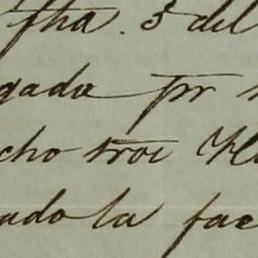 fha. 5 del
gada pr
cho
ado la fac